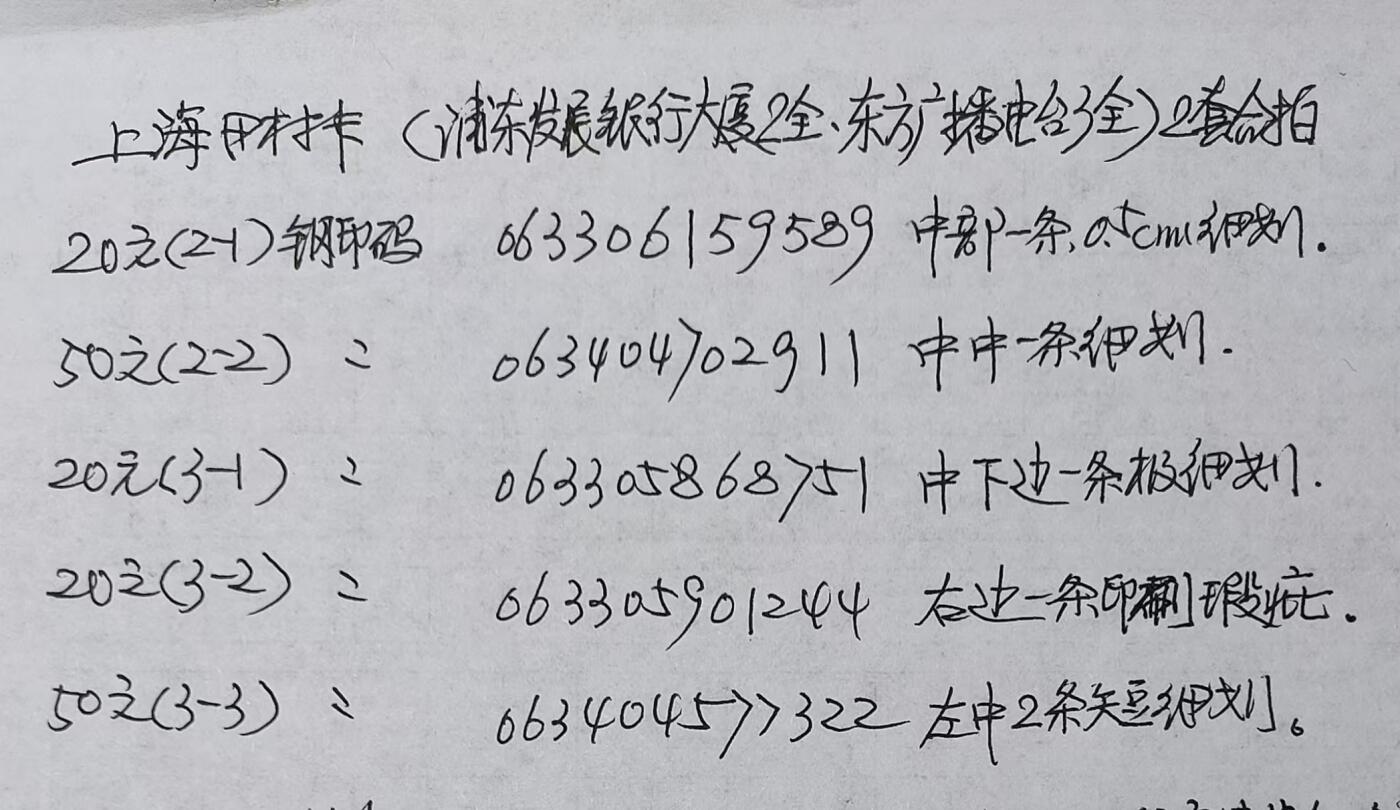 上海田村卡（浦东发展银行大厦2全、东方广播电台3全）2套合拍
20元(2-1)钢印码 063306159589 中部一条0.5cm细划.
50元(2-2) 〃 063404702911 中中一条细划.
20元(3-1) 〃 063305868751 中下边一条极细划.
20元(3-2) 〃 063305901244 右边一条印刷瑕疵.
50元(3-3) 〃 063404577322 左中2条短细划。